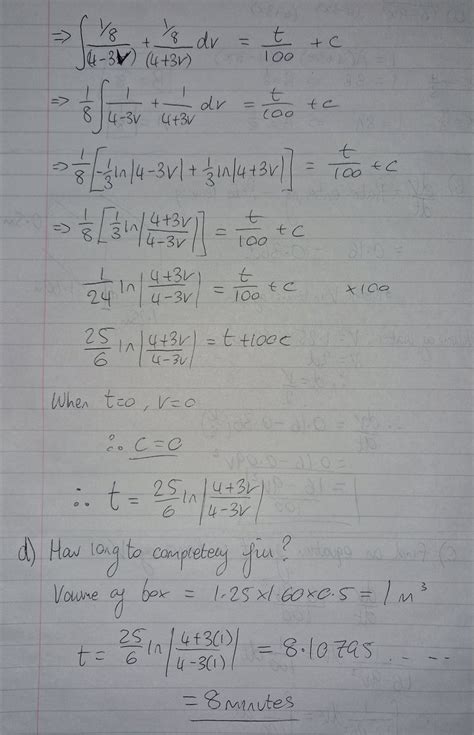 ⇒ ∫ (1/8)/(4-3v) + (1/8)/(4+3v) dv = t/100 + c
⇒ 1/8 ∫ 1/(4-3v) + 1/(4+3v) dv = t/100 + c
⇒ 1/8 [-1/3 ln|4-3v| + 1/3 ln|4+3v|] = t/100 + c
⇒ 1/8 [1/3 ln|(4+3v)/(4-3v)|] = t/100 + c
1/24 ln|(4+3v)/(4-3v)| = t/100 + c ×100
25/6 ln|(4+3v)/(4-3v)| = t + 100c
When t=0, v=0
∴ c=0
∴ t = 25/6 ln|(4+3v)/(4-3v)|
d) How long to completely fill?
Volume of box = 1.25×1.60×0.5 = 1 m³
t = 25/6 ln|(4+3(1))/(4-3(1))| = 8.10795 ......
= 8 minutes